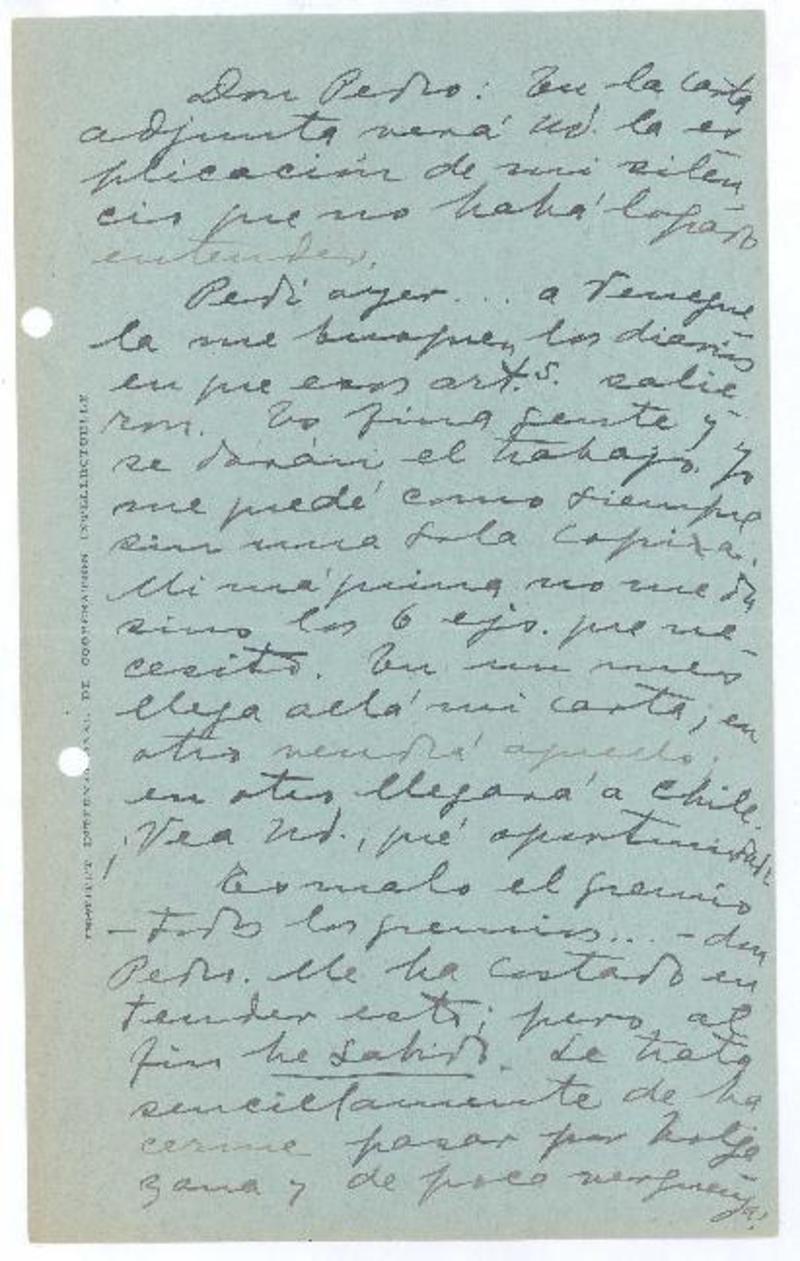 Don Pedro: En la carta
adjunta verá Ud. la ex
plicación de mi silen
cio que no había logrado
entender.
Pedí ayer... a Venezue
la me busquen los diarios
en que esos art.s. salie
ron. Es fina gente y
se darán el trabajo. Yo
me quedé como siempre
sin una sola copia.
Mi máquina no me da
sino los 6 ejs. que ne-
cesito. En un mes
llega allá mi carta; en
otro vendrá aquello;
en otro llegará a Chile.
¡Vea Ud., qué oportunidad!
Es malo el gremio
—todos los gremios... — don
Pedro. Me ha costado en
tender esto; pero al
fin he sabido. Se trata
sencillamente de ha
cerme pasar por holga
zana y de poca vergüenza!
INSTITUT INTERNATIONAL DE COOPERATION INTELLECTUELLE